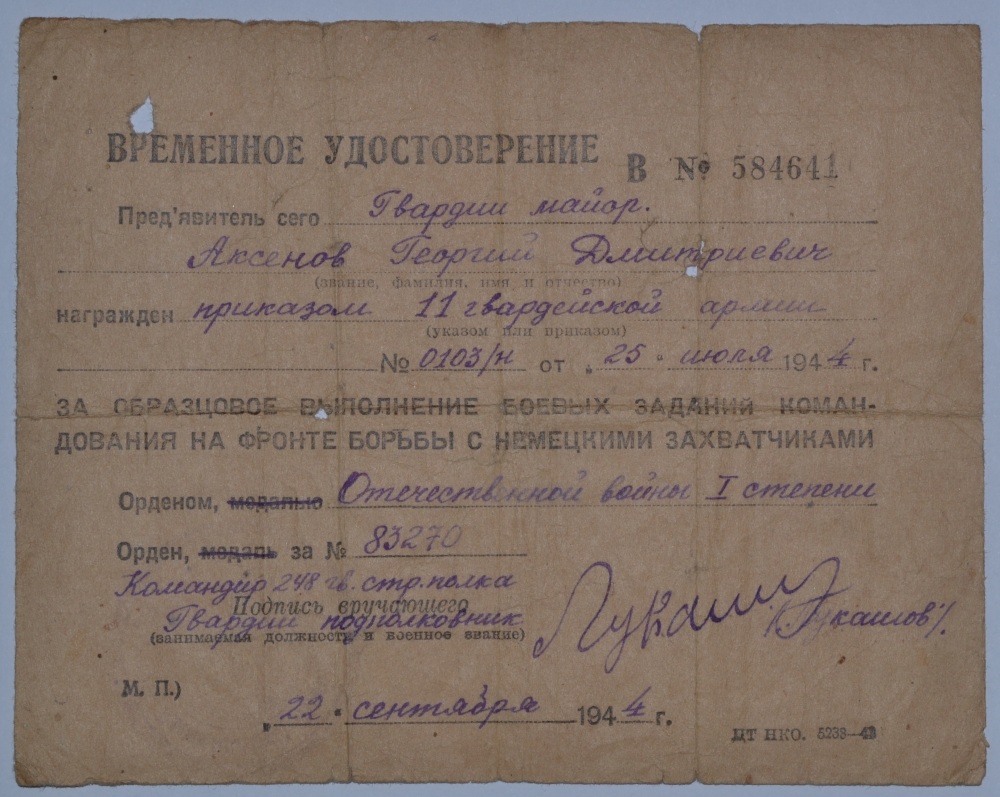 ВРЕМЕННОЕ УДОСТОВЕРЕНИЕ В № 584641
Пред'явитель сего Гвардии майор.
Аксенов Георгий Дмитриевич
(звание, фамилия, имя и отчество)
награжден приказом 11 гвардейской армии
(указом или приказом)
№ 0103/н от „ 25 " июля 1944 г.
ЗА ОБРАЗЦОВОЕ ВЫПОЛНЕНИЕ БОЕВЫХ ЗАДАНИЙ КОМАН-
ДОВАНИЯ НА ФРОНТЕ БОРЬБЫ С НЕМЕЦКИМИ ЗАХВАТЧИКАМИ
Орденом, медалью Отечественной войны I степени
Орден, медаль за № 83270
Командир 248 гв. стр. полка
Подпись вручающего
Гвардии подполковник
(занимаемая должность и военное звание)
М. П.)
„ 22 " сентября 1944 г.
ЦТ НКО. 5238—